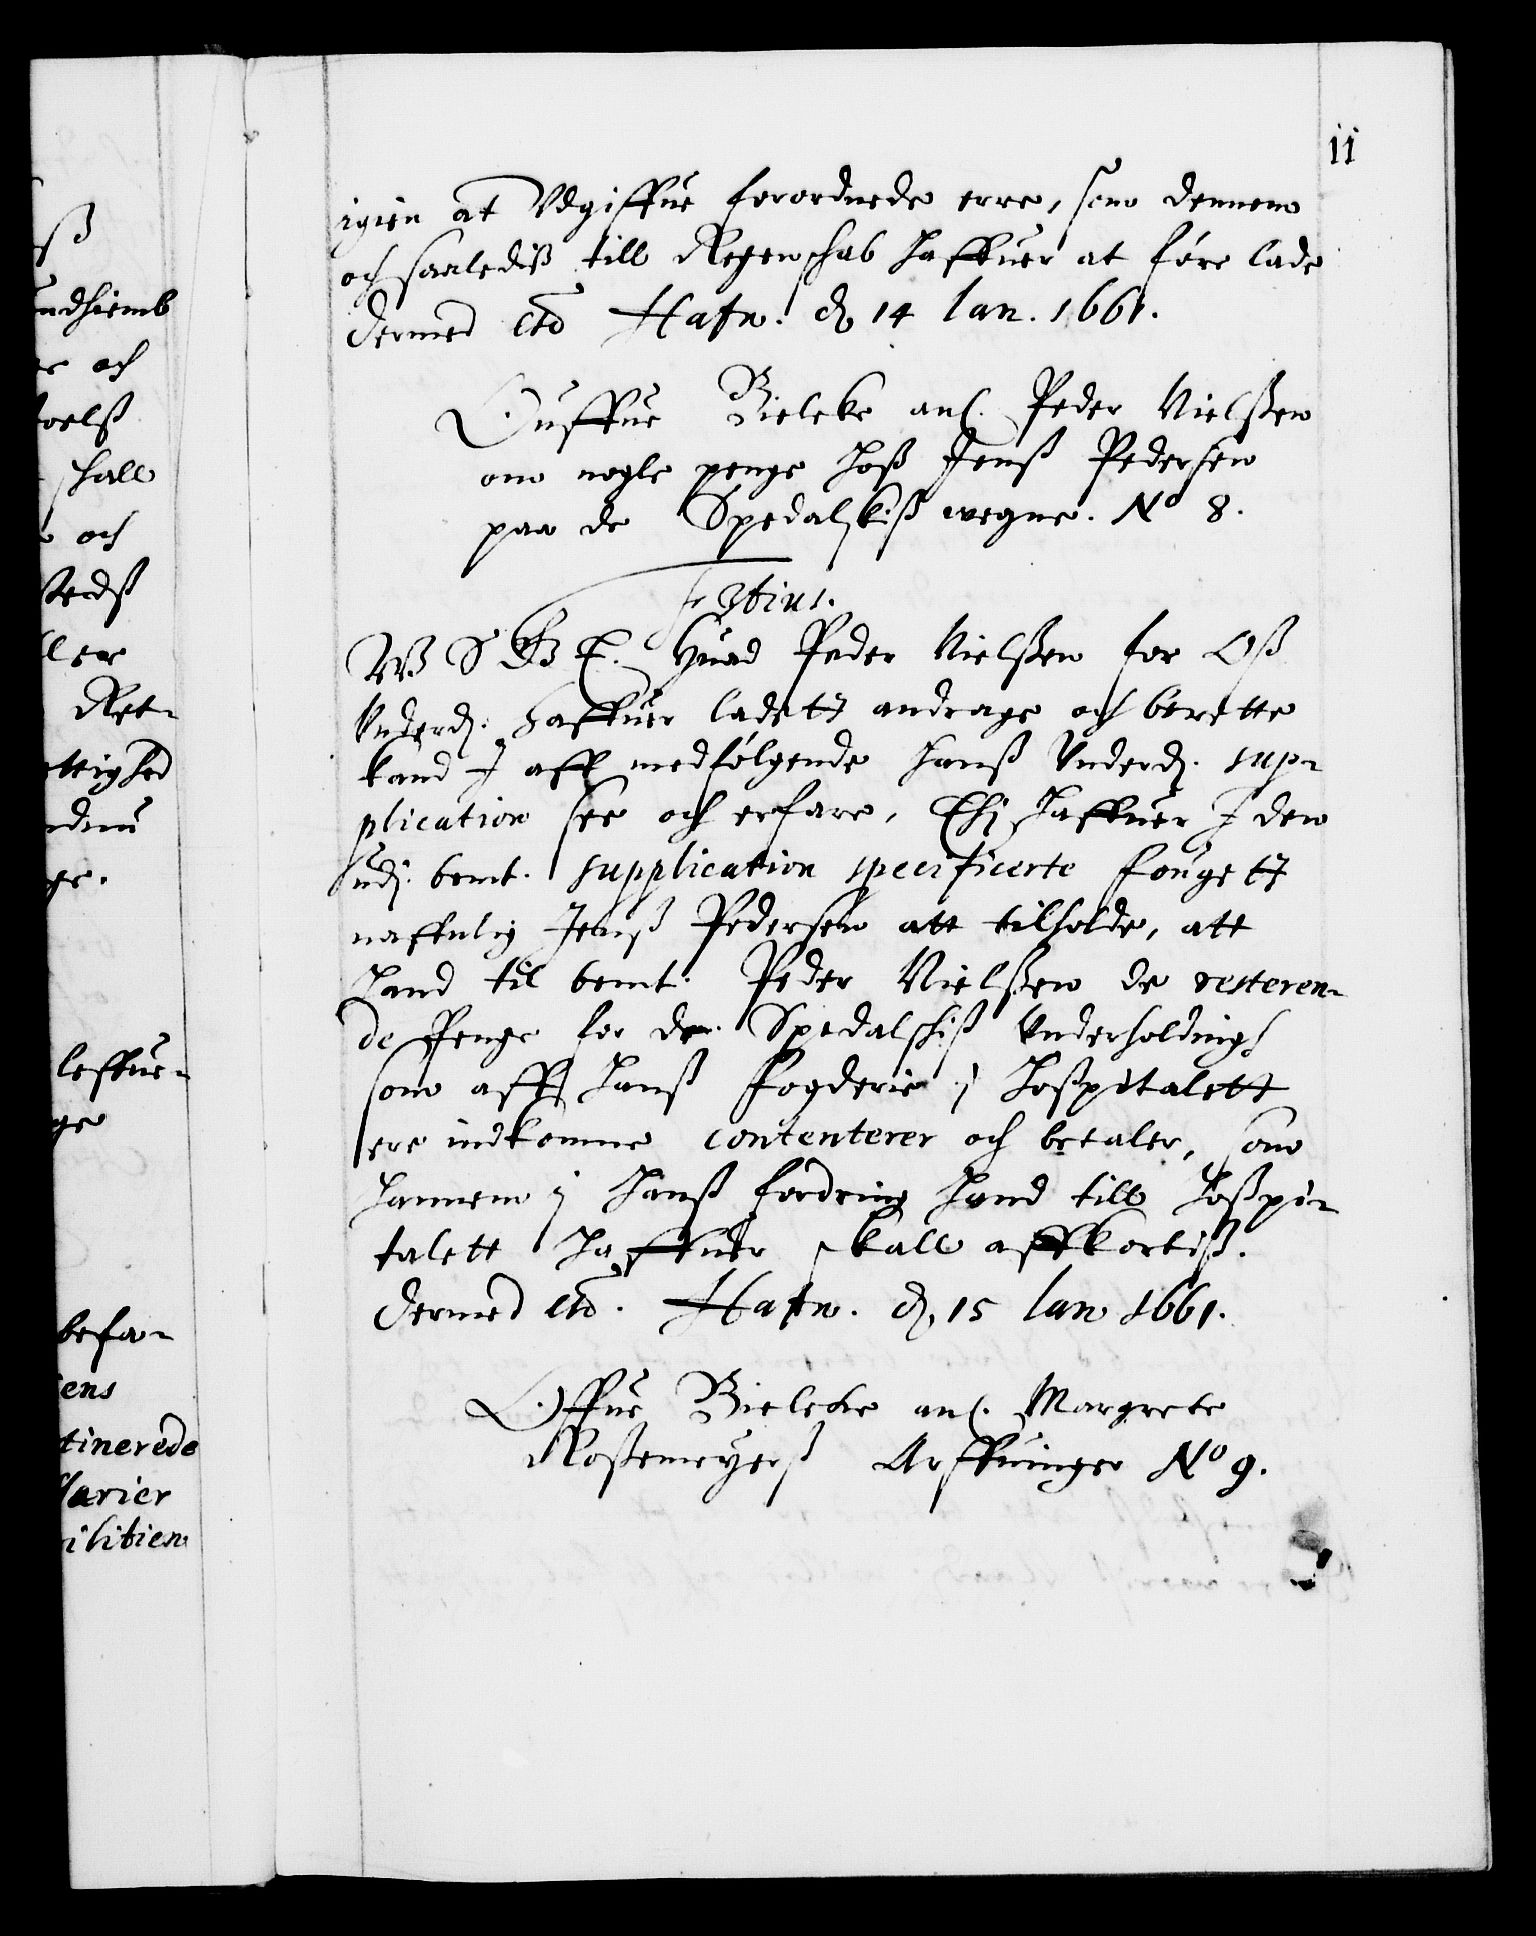 ii
igien at Udgiffue forordnede erre, som dennem
och saaledis till Regenschab haffuer at føre lade
dermed etc Hafn. d. 14 Ian. 1661.
Ouffue Bielcke anl. Peder Nielssen
om nogle penge hoss Jenss Pedersen
paa de Spedalskiss wegne. No 8.
F 3tius.
W. S. G. T. Huad Peder Nielssen for Oss
Underd. haffuer ladett andrage och berette
kand I aff medfølgende hanss Underd. sup-
plication see och erfare, Thi haffuer I den
udj bemt. supplication specificerte fougett
naffnlig Jenss Pedersen att tilholde, att
hand til bemt. Peder Nielssen de resteren-
de Penge for de Spedalschiss Underholding
som aff hanss fogderie i hosspitalett
ere indkomne contenterer och betaler, som
hannem i hanss fordring hand till hosspi-
talett haffuer skall affkortiss.
dermed etc. Hafn. d. 15 Ian 1661.
Offue Bielcke anl. Margrete
Rossemeyerss Arffuinger No 9.
ss
undhiemb
och
shall
och
ller
Ret-
ettighed
ge.
leffue-
ge
befa-
ens
tinerede
larier
ilitien